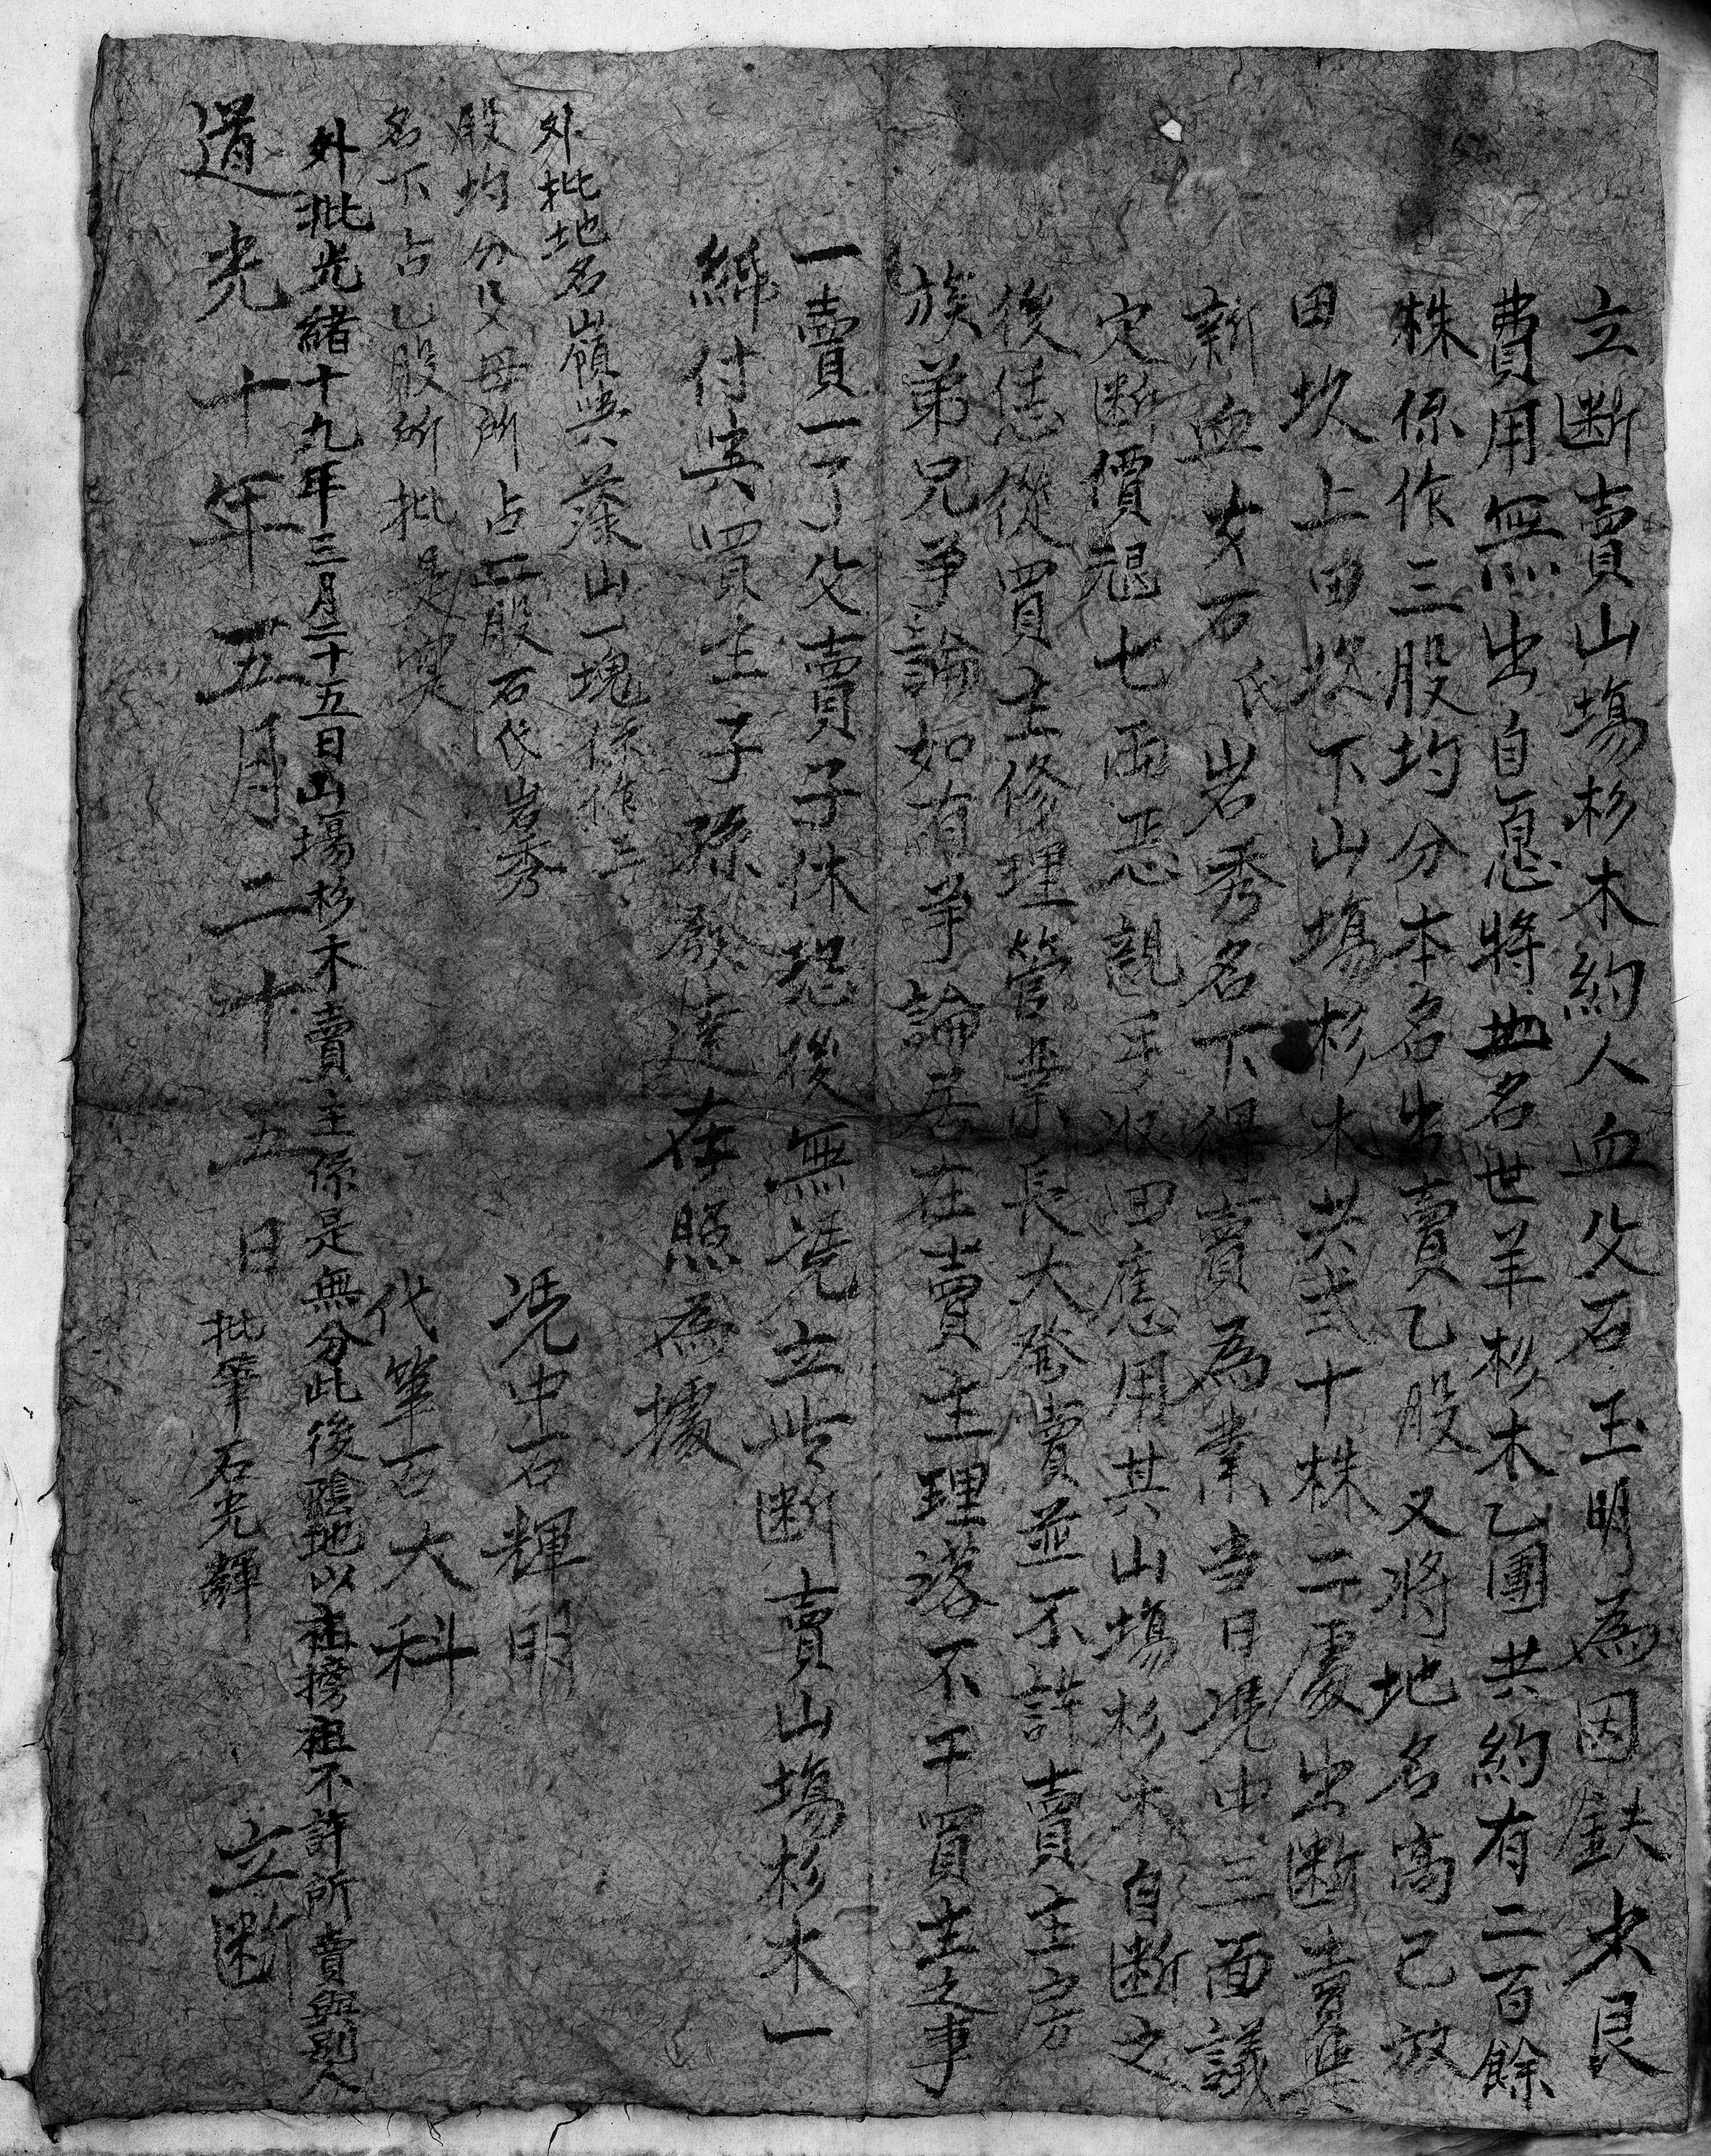 立断賣山塲杉木約人血父石玉明為因缺少艮
費用無出自愿將地名世羊杉木乙團共約有二百餘
株係作三股均分本名出賣乙股又將地名高己放
田坎上田坎下山塲杉木共弍十株二處出断賣與
新血女石氏岩秀名下得賣為業當日凴中三面議
定断價艮七両正親手收回應用其山塲杉木自断之
後恁從買主修理管業長大發賣並不許賣主房
族弟兄爭論如有爭論居在賣主理落不干買主之事
一賣一了父賣子休恐後無凴立此断賣山塲杉木一
紙付與買主子孫發達在照為據
外批地名嶺與蔆山一塊係作三
股均分父母所占二股石氏岩秀
名下占乙股所批是寔
凴中石輝明
代筆石大科
外批光緒十九年三月二十五日山塲杉木賣主係是無分此後陰地以祖搒祖不許所賣與別人
道光十年五月二十五日 立断
批筆石光輝